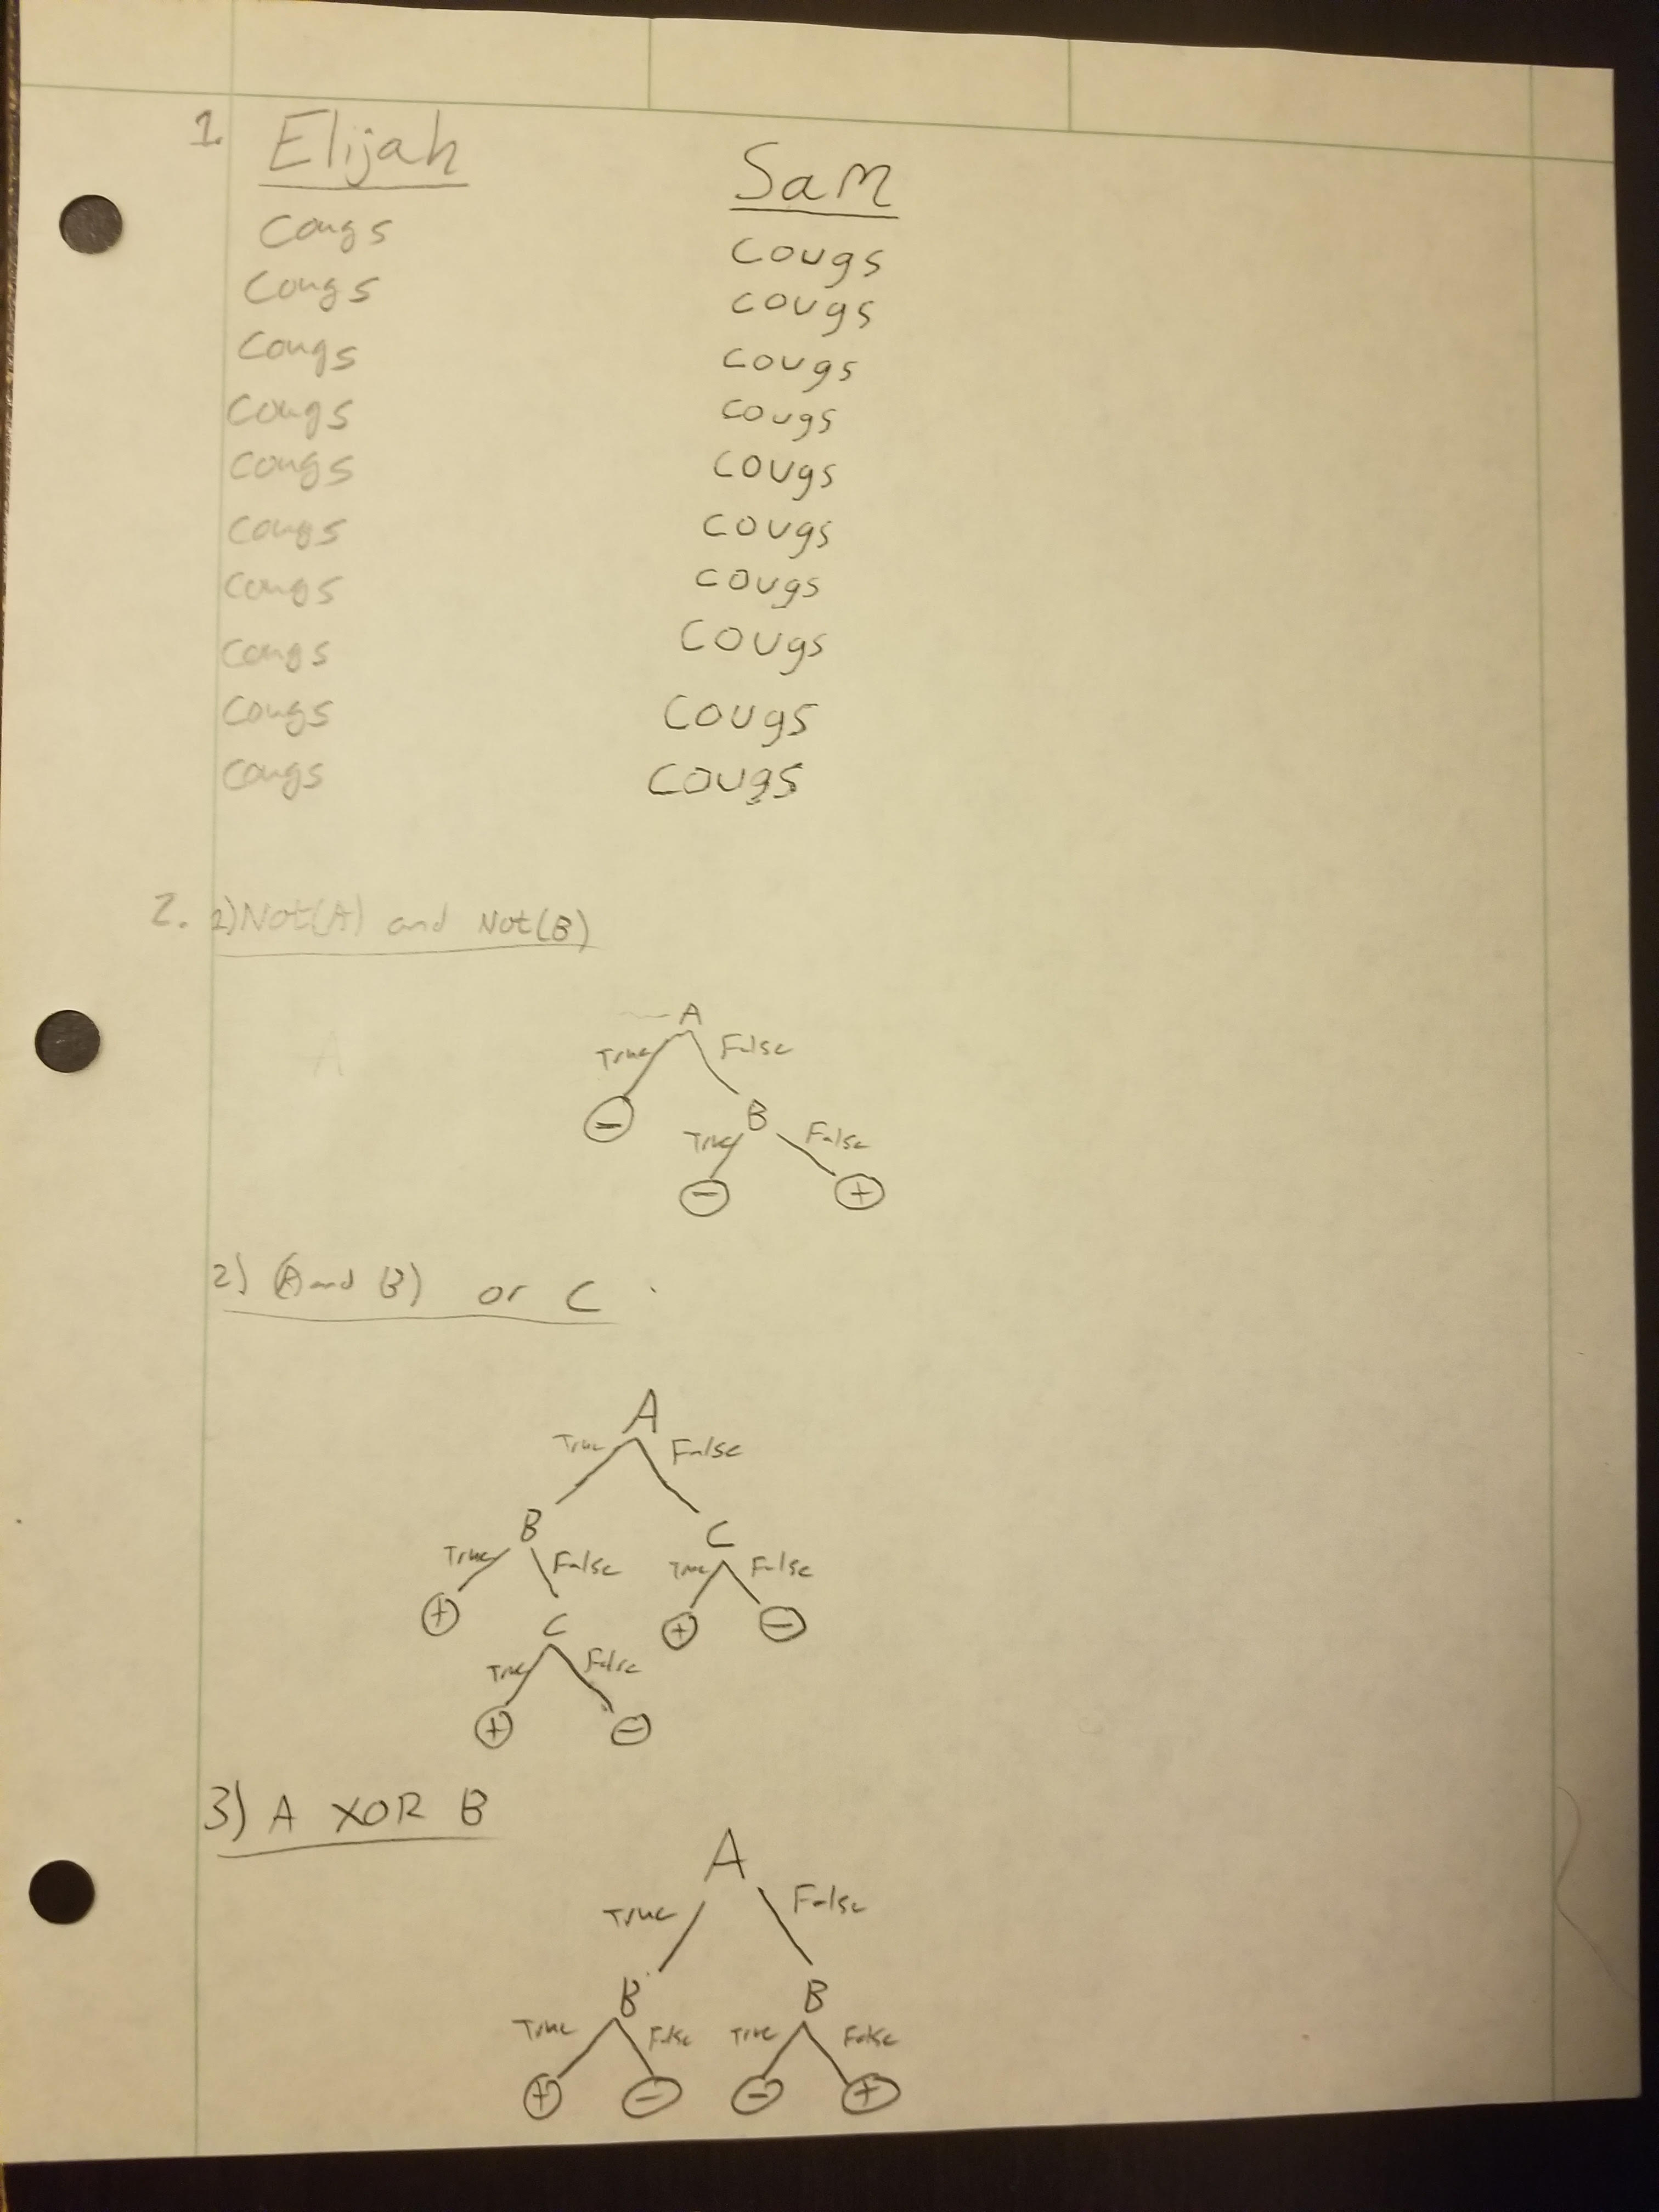 1. Elijah
Cougs
Cougs
Cougs
Cougs
Cougs
Cougs
Cougs
Cougs
Cougs
Cougs
Sam
cougs
cougs
cougs
cougs
cougs
cougs
cougs
cougs
cougs
cougs
2. 1) Not(A) and Not(B)
A
A
True False
− B
True False
− +
2) (A and B) or C
A
True False
B C
True False True False
+ C + −
True False
+ −
3) A XOR B
A
True False
B B
True False True False
+ − − +